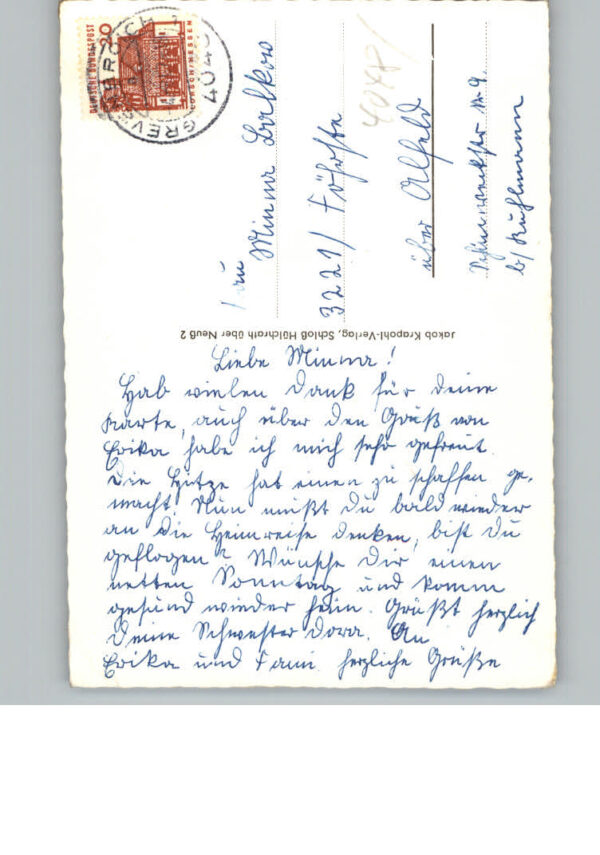 DEUTSCHE BUNDESPOST
20
LORSCH/HESSEN
GREVENBROICH
4040
Minna
3221/ Föhrste
über Alfeld
Schwer
b/ Kuhlmann
4048/
Jakob Krapohl-Verlag, Schloß Hülchrath über Neuß 2
Liebe Minna!
Hab vielen Dank für deine
Karte, auch über den Gruß von
Erika habe ich mich sehr gefreut.
Die Hitze hat einen zu schaffen ge-
macht. Nun mußt Du bald wieder
an die Heimreise denken, bist Du
geflogen? Wünsche Dir einen
netten Sonntag und komm
gesund wieder heim. Grüßt herzlich
Deine Schwester Dora. An
Erika und Fami. herzliche Grüße